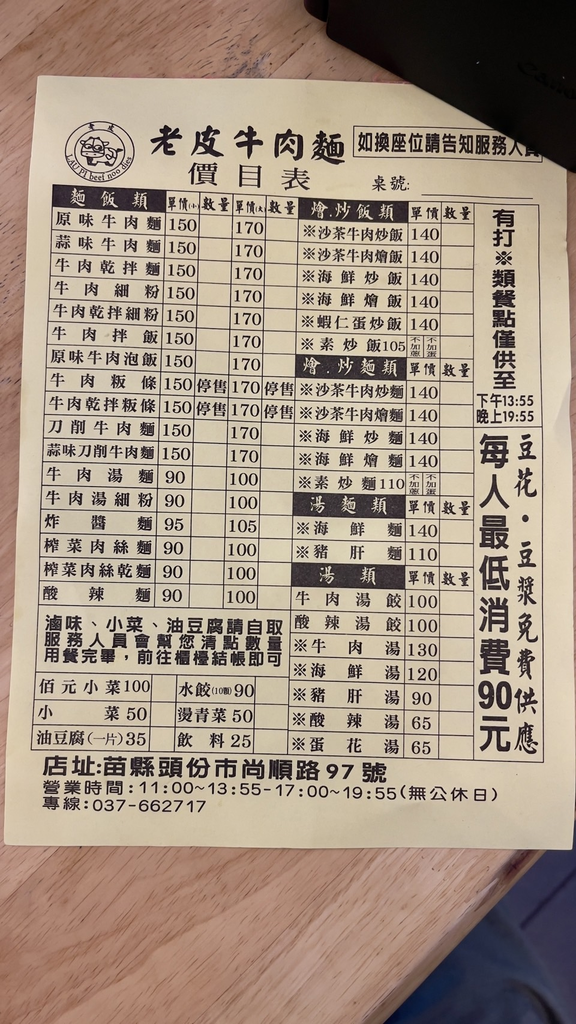 老皮
LAU PI beef noodles
老皮牛肉麵
如換座位請告知服務人員
價目表
桌號:
麵飯類 單價(小) 數量 單價(大) 數量
原味牛肉麵 150 170
蒜味牛肉麵 150 170
牛肉乾拌麵 150 170
牛肉細粉 150 170
牛肉乾拌細粉 150 170
牛肉拌飯 150 170
原味牛肉泡飯 150 170
牛肉粄條 150 停售 170 停售
牛肉乾拌粄條 150 停售 170 停售
刀削牛肉麵 150 170
蒜味刀削牛肉麵 150 170
牛肉湯麵 90 100
牛肉湯細粉 90 100
炸醬麵 95 105
榨菜肉絲麵 90 100
榨菜肉絲乾麵 90 100
酸辣麵 90 100
滷味、小菜、油豆腐請自取
服務人員會幫您清點數量
用餐完畢，前往櫃檯結帳即可
佰元小菜 100 水餃(10顆) 90
小菜 50 燙青菜 50
油豆腐(一片) 35 飲料 25
燴.炒飯類 單價 數量
※沙茶牛肉炒飯 140
※沙茶牛肉燴飯 140
※海鮮炒飯 140
※海鮮燴飯 140
※蝦仁蛋炒飯 140
※素炒飯 105 不加蔥 不加蛋
燴.炒麵類 單價 數量
※沙茶牛肉炒麵 140
※沙茶牛肉燴麵 140
※海鮮炒麵 140
※海鮮燴麵 140
※素炒麵 110 不加蔥 不加蛋
湯麵類 單價 數量
※海鮮麵 140
※豬肝麵 110
湯類 單價 數量
牛肉湯餃 100
酸辣湯餃 100
※牛肉湯 130
※海鮮湯 120
※豬肝湯 90
※酸辣湯 65
※蛋花湯 65
有打※類餐點僅供至
下午13:55
晚上19:55
豆花·豆漿免費供應
每人最低消費90元
店址:苗縣頭份市尚順路97號
營業時間:11:00~13:55-17:00~19:55(無公休日)
專線:037-662717